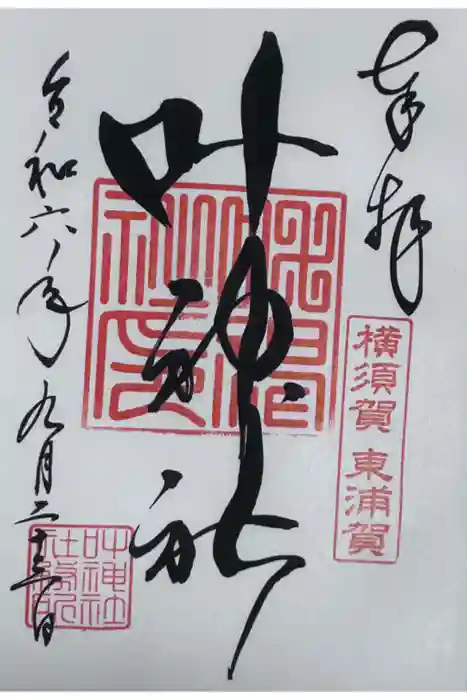 奉拝
横須賀 東浦賀
叶神社
叶神社
社務所
令和六年九月二十三日